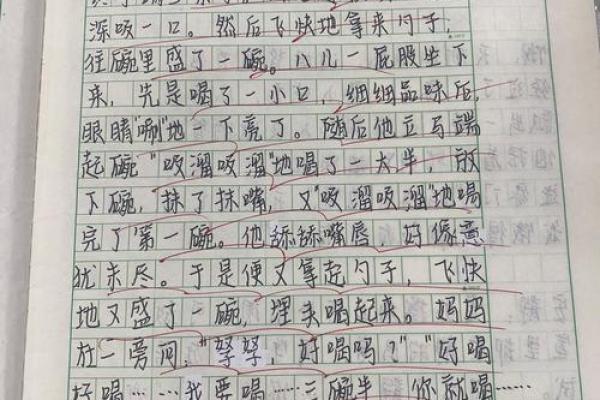 深吸一口。然后飞快地拿来勺子，
往碗里盛了一碗。八儿一屁股坐下
来，先是喝了一小口，细细品味后，
眼睛"唰"地一下亮了。随后他立马端
起碗"吸溜吸溜"地喝了一大半，放
下碗，抹了抹嘴，又"吸溜吸溜"地喝
完了第一碗。他舔舔嘴唇，好像意
犹未尽。于是便又拿起勺子，飞快
地又盛了一碗，埋头喝起来。妈妈
在一旁问，"
好喝吗？""好喝
好喝……我要喝……三碗半
你就喝……